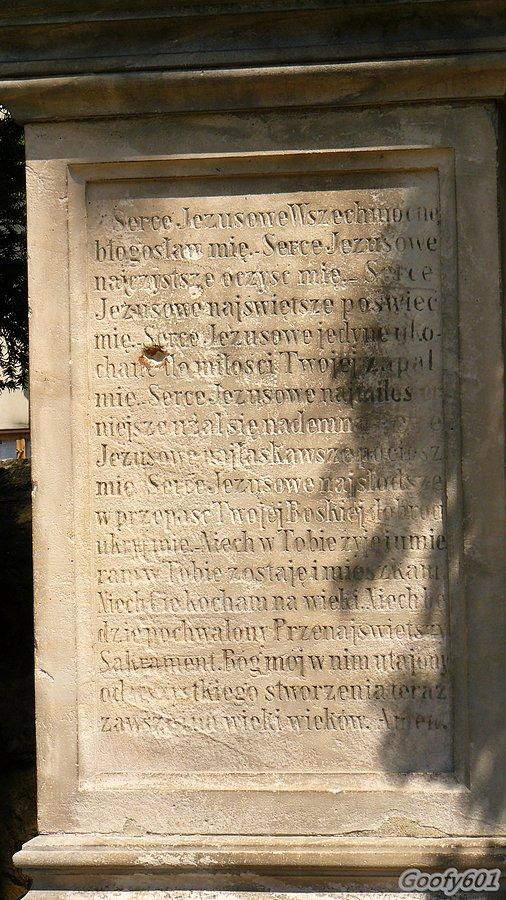 Serce Jezusowe Wszechmocne
błogosław mię. Serce Jezusowe
najczystsze oczyść mię. Serce
Jezusowe najświętsze poświęć
mię. Serce Jezusowe jedyne uko-
chane do miłości Twojej zapal
mię. Serce Jezusowe najmiłosier
niejsze użal się nademną Serce
Jezusowe najłaskawsze pociesz
mię. Serce Jezusowe najsłodsze
w przepaść Twojej Boskiej dobroci
ukryj mię. Niech w Tobie żyję i umie
ram w Tobie zostaję i mieszkam.
Niech Cię kocham na wieki. Niech bę
dzie pochwalony Przenajświętszy
Sakrament. Bóg mój w nim utajony
od wszystkiego stworzenia teraz
zawsze i na wieki wieków. Amen.
Goofy601